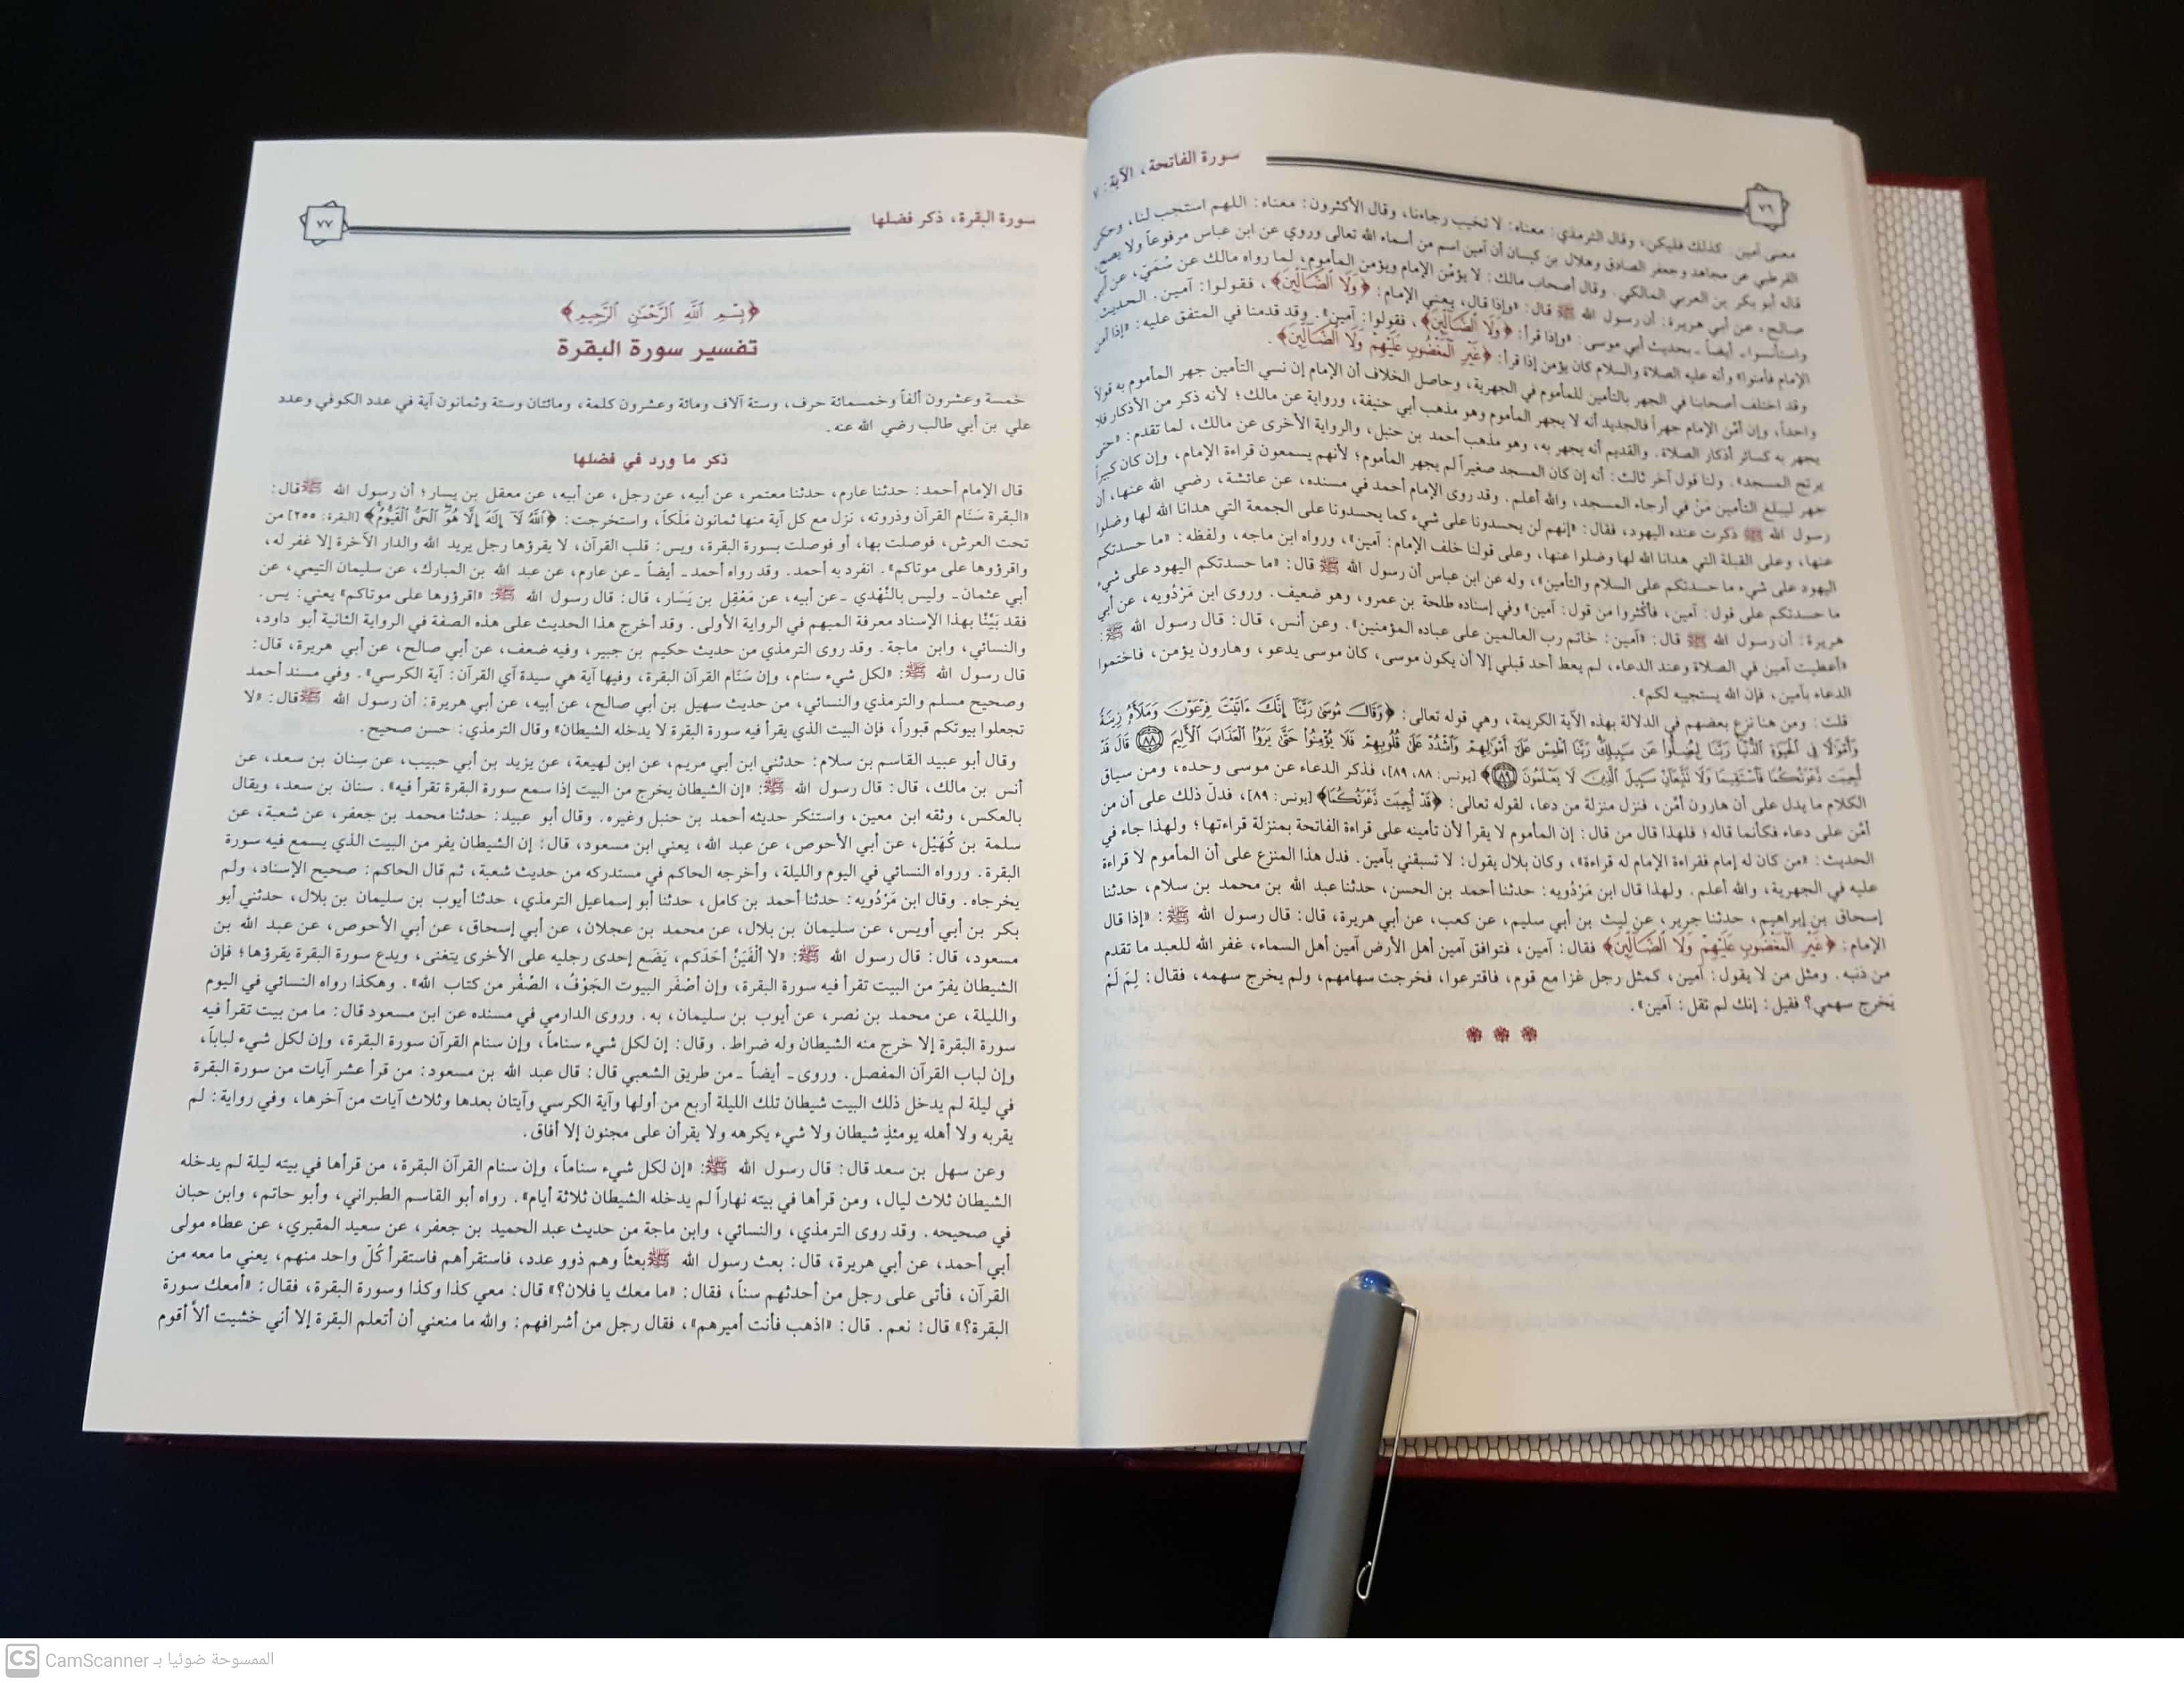 سورة الفاتحة، الآية: ٧
٧٦
معنى آمين. كذلك فليكن، وقال الترمذي: معناه: لا تخيب رجاءنا، وقال الأكثرون: معناه: اللهم استجب لنا، وحكى
القرطبي عن مجاهد وجعفر الصادق وهلال بن كيسان أن آمين اسم من أسماء الله تعالى وروي عن ابن عباس مرفوعاً ولا يصح،
قاله أبو بكر بن العربي المالكي. وقال أصحاب مالك: لا يؤمّن الإمام ويؤمن المأموم، لما رواه مالك عن سُمَيّ، عن أبي
صالح، عن أبي هريرة: أن رسول الله ﷺ قال: «وإذا قال، يعني الإمام: ﴿وَلَا ٱلضَّآلِّينَ﴾، فقولوا: آمين. الحديث
واستأنسوا ـ أيضاً ـ بحديث أبي موسى: «وإذا قرأ: ﴿وَلَا ٱلضَّآلِّينَ﴾، فقولوا: آمين». وقد قدمنا في المتفق عليه: «إذا أمن
الإمام فأمنوا» وأنه عليه الصلاة والسلام كان يؤمن إذا قرأ: ﴿غَيْرِ ٱلْمَغْضُوبِ عَلَيْهِمْ وَلَا ٱلضَّآلِّينَ﴾.
وقد اختلف أصحابنا في الجهر بالتأمين للمأموم في الجهرية، وحاصل الخلاف أن الإمام إن نسي التأمين جهر المأموم به قولاً
واحداً، وإن أمّن الإمام جهراً فالجديد أنه لا يجهر المأموم وهو مذهب أبي حنيفة، ورواية عن مالك؛ لأنه ذكر من الأذكار فلا
يجهر به كسائر أذكار الصلاة. والقديم أنه يجهر به، وهو مذهب أحمد بن حنبل، والرواية الأخرى عن مالك، لما تقدم: «حتى
يرتج المسجد». ولنا قول آخر ثالث: أنه إن كان المسجد صغيراً لم يجهر المأموم؛ لأنهم يسمعون قراءة الإمام، وإن كان كبيراً
جهر ليبلغ التأمين مَنْ في أرجاء المسجد، والله أعلم. وقد روى الإمام أحمد في مسنده، عن عائشة، رضي الله عنها، أن
رسول الله ﷺ ذكرت عنده اليهود، فقال: «إنهم لن يحسدونا على شيء كما يحسدونا على الجمعة التي هدانا الله لها وضلوا
عنها، وعلى القبلة التي هدانا الله لها وضلوا عنها، وعلى قولنا خلف الإمام: آمين»، ورواه ابن ماجه، ولفظه: «ما حسدتكم
اليهود على شيء ما حسدتكم على السلام والتأمين»، وله عن ابن عباس أن رسول الله ﷺ قال: «ما حسدتكم اليهود على شيء
ما حسدتكم على قول: آمين، فأكثروا من قول: آمين» وفي إسناده طلحة بن عمرو، وهو ضعيف. وروى ابن مَرْدُويه، عن أبي
هريرة: أن رسول الله ﷺ قال: «آمين: خاتم رب العالمين على عباده المؤمنين». وعن أنس، قال: قال رسول الله ﷺ:
«أعطيت آمين في الصلاة وعند الدعاء، لم يعط أحد قبلي إلا أن يكون موسى، كان موسى يدعو، وهارون يؤمن، فاختموا
الدعاء بآمين، فإن الله يستجيبه لكم».
قلت: ومن هنا نزع بعضهم في الدلالة بهذه الآية الكريمة، وهي قوله تعالى: ﴿وَقَالَ مُوسَىٰ رَبَّنَآ إِنَّكَ ءَاتَيْتَ فِرْعَوْنَ وَمَلَأَهُۥ زِينَةً
وَأَمْوَٰلًا فِي ٱلْحَيَوٰةِ ٱلدُّنْيَا رَبَّنَا لِيُضِلُّوا۟ عَن سَبِيلِكَ رَبَّنَا ٱطْمِسْ عَلَىٰٓ أَمْوَٰلِهِمْ وَٱشْدُدْ عَلَىٰ قُلُوبِهِمْ فَلَا يُؤْمِنُوا۟ حَتَّىٰ يَرَوُا۟ ٱلْعَذَابَ ٱلْأَلِيمَ ۝٨٨ قَالَ قَدْ
أُجِيبَت دَّعْوَتُكُمَا فَٱسْتَقِيمَا وَلَا تَتَّبِعَآنِّ سَبِيلَ ٱلَّذِينَ لَا يَعْلَمُونَ ۝٨٩﴾ [يونس: ٨٨، ٨٩]، فذكر الدعاء عن موسى وحده، ومن سياق
الكلام ما يدل على أن هارون أمّن، فنزل منزلة من دعا، لقوله تعالى: ﴿قَدْ أُجِيبَت دَّعْوَتُكُمَا﴾ [يونس: ٨٩]، فدلّ ذلك على أن من
أمّن على دعاء فكأنما قاله؛ فلهذا قال من قال: إن المأموم لا يقرأ لأن تأمينه على قراءة الفاتحة بمنزلة قراءتها؛ ولهذا جاء في
الحديث: «من كان له إمام فقراءة الإمام له قراءة»، وكان بلال يقول: لا تسبقني بآمين. فدل هذا المنزع على أن المأموم لا قراءة
عليه في الجهرية، والله أعلم. ولهذا قال ابن مَرْدُويه: حدثنا أحمد بن الحسن، حدثنا عبد الله بن محمد بن سلام، حدثنا
إسحاق بن إبراهيم، حدثنا جرير، عن ليث بن أبي سليم، عن كعب، عن أبي هريرة، قال: قال رسول الله ﷺ: «إذا قال
الإمام: ﴿غَيْرِ ٱلْمَغْضُوبِ عَلَيْهِمْ وَلَا ٱلضَّآلِّينَ﴾ فقال: آمين، فتوافق آمين أهل الأرض آمين أهل السماء، غفر الله للعبد ما تقدم
من ذنبه. ومثل من لا يقول: آمين، كمثل رجل غزا مع قوم، فاقترعوا، فخرجت سهامهم، ولم يخرج سهمه، فقال: لِمَ لَمْ
يَخرج سهمي؟ فقيل: إنك لم تقل: آمين».
سورة البقرة، ذكر فضلها
٧٧
﴿بِسْمِ ٱللَّهِ ٱلرَّحْمَٰنِ ٱلرَّحِيمِ﴾
تفسير سورة البقرة
خمسة وعشرون ألفاً وخمسمائة حرف، وستة آلاف ومائة وعشرون كلمة، ومائتان وستة وثمانون آية في عدد الكوفي وعدد
علي بن أبي طالب رضي الله عنه.
ذكر ما ورد في فضلها
قال الإمام أحمد: حدثنا عارم، حدثنا معتمر، عن أبيه، عن رجل، عن أبيه، عن معقل بن يسار؛ أن رسول الله ﷺ قال:
«البقرة سَنَام القرآن وذروته، نزل مع كل آية منها ثمانون مَلَكاً، واستخرجت: ﴿ٱللَّهُ لَآ إِلَٰهَ إِلَّا هُوَ ٱلْحَىُّ ٱلْقَيُّومُ﴾ [البقرة: ٢٥٥] من
تحت العرش، فوصلت بها، أو فوصلت بسورة البقرة، ويس: قلب القرآن، لا يقرؤها رجل يريد الله والدار الآخرة إلا غفر له،
واقرؤوها على موتاكم». انفرد به أحمد. وقد رواه أحمد ـ أيضاً ـ عن عارم، عن عبد الله بن المبارك، عن سليمان التيمي، عن
أبي عثمان ـ وليس بالنَّهْدي ـ عن أبيه، عن مَعْقِل بن يَسَار، قال: قال رسول الله ﷺ: «اقرؤوها على موتاكم» يعني: يس.
فقد بَيَّنَّا بهذا الإسناد معرفة المبهم في الرواية الأولى. وقد أخرج هذا الحديث على هذه الصفة في الرواية الثانية أبو داود،
والنسائي، وابن ماجة. وقد روى الترمذي من حديث حكيم بن جبير، وفيه ضعف، عن أبي صالح، عن أبي هريرة، قال:
قال رسول الله ﷺ: «لكل شيء سنام، وإن سَنَام القرآن البقرة، وفيها آية هي سيدة آي القرآن: آية الكرسي». وفي مسند أحمد
وصحيح مسلم والترمذي والنسائي، من حديث سهيل بن أبي صالح، عن أبيه، عن أبي هريرة: أن رسول الله ﷺ قال: «لا
تجعلوا بيوتكم قبوراً، فإن البيت الذي يقرأ فيه سورة البقرة لا يدخله الشيطان» وقال الترمذي: حسن صحيح.
وقال أبو عبيد القاسم بن سلام: حدثني ابن أبي مريم، عن ابن لهيعة، عن يزيد بن أبي حبيب، عن سِنان بن سعد، عن
أنس بن مالك، قال: قال رسول الله ﷺ: «إن الشيطان يخرج من البيت إذا سمع سورة البقرة تقرأ فيه». سنان بن سعد، ويقال
بالعكس، وثقه ابن معين، واستنكر حديثه أحمد بن حنبل وغيره. وقال أبو عبيد: حدثنا محمد بن جعفر، عن شعبة، عن
سلمة بن كُهَيْل، عن أبي الأحوص، عن عبد الله، يعني ابن مسعود، قال: إن الشيطان يفر من البيت الذي يسمع فيه سورة
البقرة. ورواه النسائي في اليوم والليلة، وأخرجه الحاكم في مستدركه من حديث شعبة، ثم قال الحاكم: صحيح الإسناد، ولم
يخرجاه. وقال ابن مَرْدُويه: حدثنا أحمد بن كامل، حدثنا أبو إسماعيل الترمذي، حدثنا أيوب بن سليمان بن بلال، حدثني أبو
بكر بن أبي أويس، عن سليمان بن بلال، عن محمد بن عجلان، عن أبي إسحاق، عن أبي الأحوص، عن عبد الله بن
مسعود، قال: قال رسول الله ﷺ: «لا أُلْفَيَنَّ أحَدَكم، يَضَع إحدى رجليه على الأخرى يتغنى، ويدع سورة البقرة يقرؤها؛ فإن
الشيطان يفرّ من البيت تقرأ فيه سورة البقرة، وإن أصْفَر البيوت الجَوْفُ، الصِّفْر من كتاب الله». وهكذا رواه النسائي في اليوم
والليلة، عن محمد بن نصر، عن أيوب بن سليمان، به. وروى الدارمي في مسنده عن ابن مسعود قال: ما من بيت تقرأ فيه
سورة البقرة إلا خرج منه الشيطان وله ضراط. وقال: إن لكل شيء سناماً، وإن سنام القرآن سورة البقرة، وإن لكل شيء لباباً،
وإن لباب القرآن المفصل. وروى ـ أيضاً ـ من طريق الشعبي قال: قال عبد الله بن مسعود: من قرأ عشر آيات من سورة البقرة
في ليلة لم يدخل ذلك البيت شيطان تلك الليلة أربع من أولها وآية الكرسي وآيتان بعدها وثلاث آيات من آخرها، وفي رواية: لم
يقربه ولا أهله يومئذٍ شيطان ولا شيء يكرهه ولا يقرأن على مجنون إلا أفاق.
وعن سهل بن سعد قال: قال رسول الله ﷺ: «إن لكل شيء سناماً، وإن سنام القرآن البقرة، من قرأها في بيته ليلة لم يدخله
الشيطان ثلاث ليال، ومن قرأها في بيته نهاراً لم يدخله الشيطان ثلاثة أيام». رواه أبو القاسم الطبراني، وأبو حاتم، وابن حبان
في صحيحه. وقد روى الترمذي، والنسائي، وابن ماجة من حديث عبد الحميد بن جعفر، عن سعيد المقبري، عن عطاء مولى
أبي أحمد، عن أبي هريرة، قال: بعث رسول الله ﷺ بعثاً وهم ذوو عدد، فاستقرأهم فاستقرأ كُلّ واحد منهم، يعني ما معه من
القرآن، فأتى على رجل من أحدثهم سناً، فقال: «ما معك يا فلان؟» قال: معي كذا وكذا وسورة البقرة، فقال: «أمعك سورة
البقرة؟» قال: نعم. قال: «اذهب فأنت أميرهم»، فقال رجل من أشرافهم: والله ما منعني أن أتعلم البقرة إلا أني خشيت ألاّ أقوم
CS CamScanner الممسوحة ضوئيا بـ